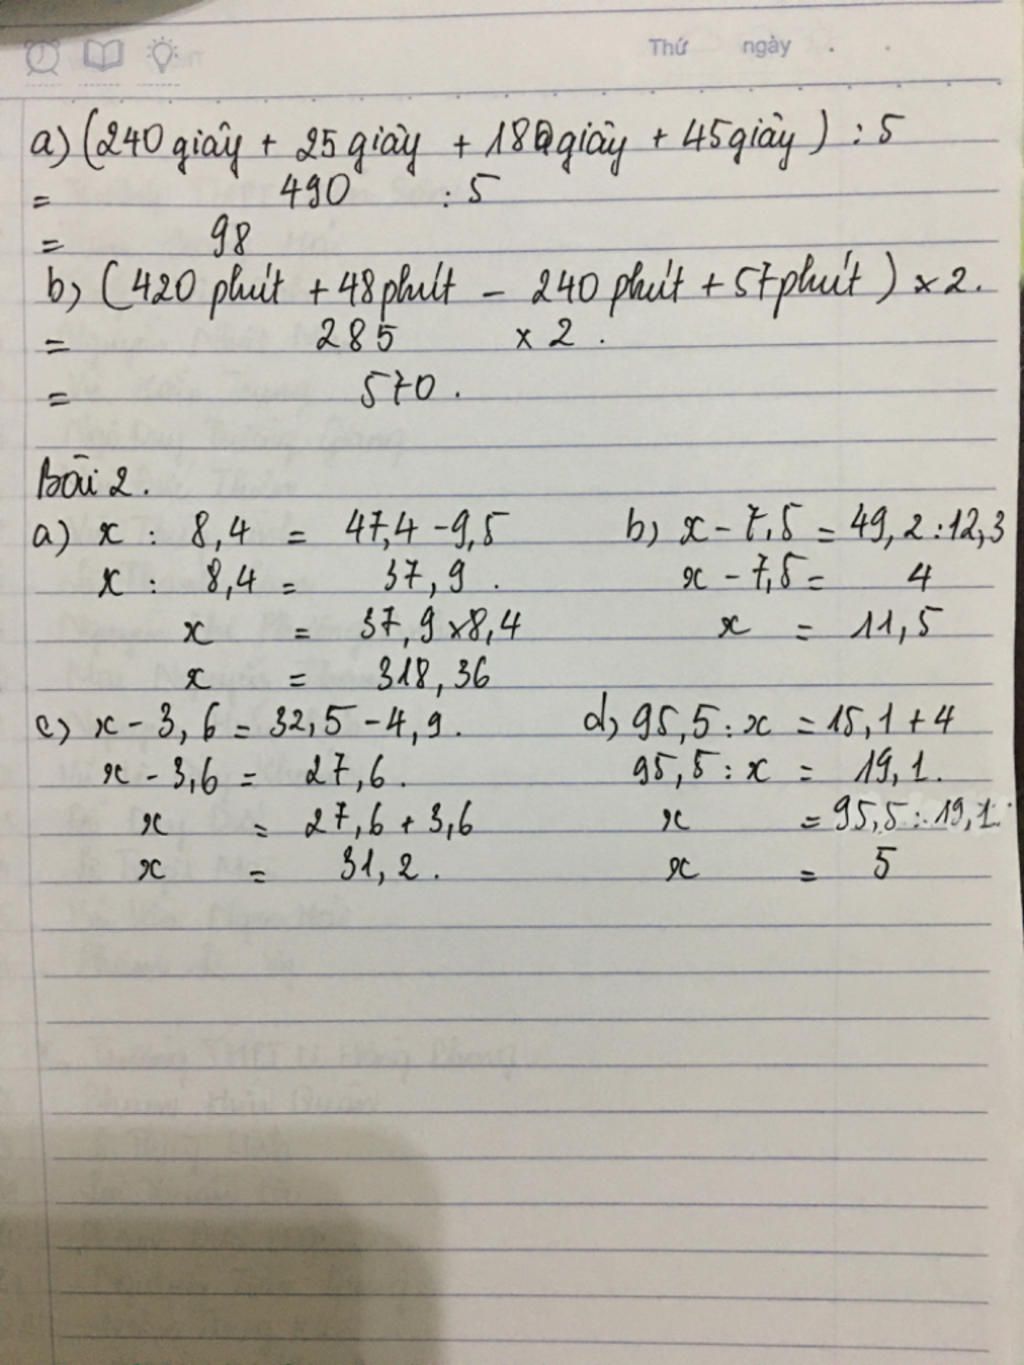 Thứ ngày
a) (240 giây + 25 giây + 180 giây + 45 giây) : 5
= 490 : 5
= 98
b) (420 phút + 48 phút - 240 phút + 57 phút) x 2.
= 285 x 2.
= 570.
Bài 2.
a) x : 8,4 = 47,4 - 9,5
x : 8,4 = 37,9.
x = 37,9 x 8,4
x = 318,36
b) x - 7,5 = 49,2 : 12,3
x - 7,5 = 4
x = 11,5
c) x - 3,6 = 32,5 - 4,9.
x - 3,6 = 27,6.
x = 27,6 + 3,6
x = 31,2.
d) 95,5 : x = 15,1 + 4
95,5 : x = 19,1.
x = 95,5 : 19,1
x = 5